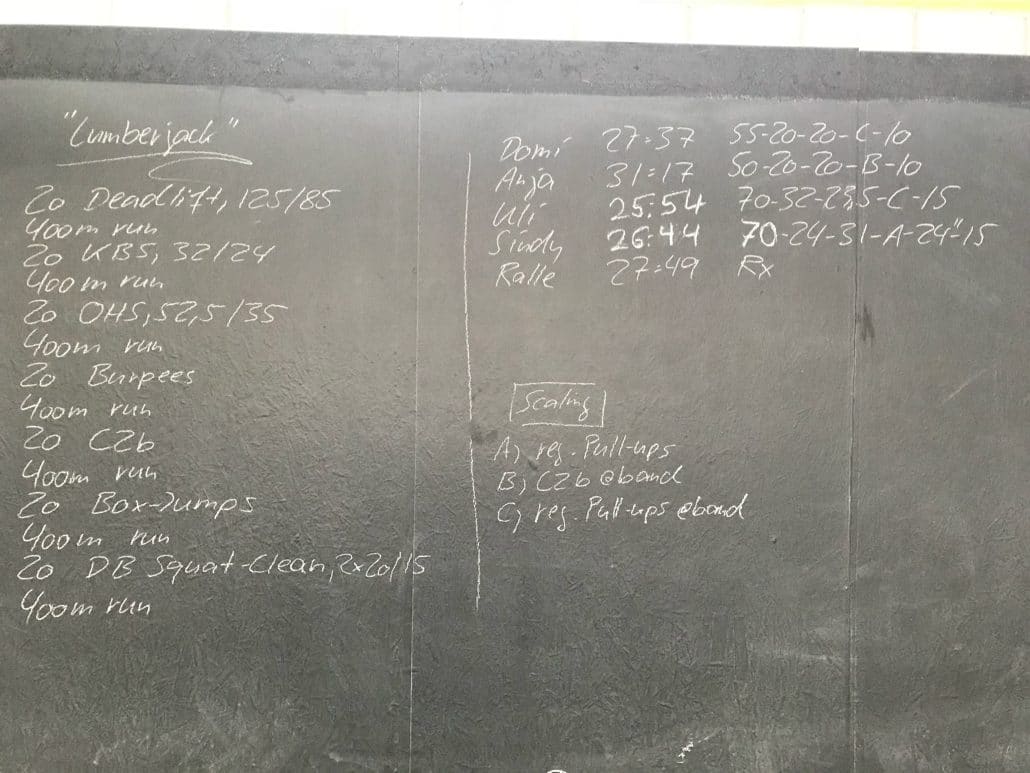 "Lumberjack"
20 Deadlift, 125/85
400m run
20 KBS, 32/24
400m run
20 OHS, 52,5/35
400m run
20 Burpees
400m run
20 C2b
400m run
20 Box-Jumps
400m run
20 DB Squat-Clean, 2x20/15
400m run
Domi 27:37 55-20-20-C-10
Anja 31:17 50-20-20-B-10
Uli 25:54 70-32-23,5-C-15
Sindy 26:44 70-24-31-A-24"-15
Ralle 27:49 Rx
Scaling
A) reg. Pull-ups
B) C2b @band
C) reg. Pull-ups @band